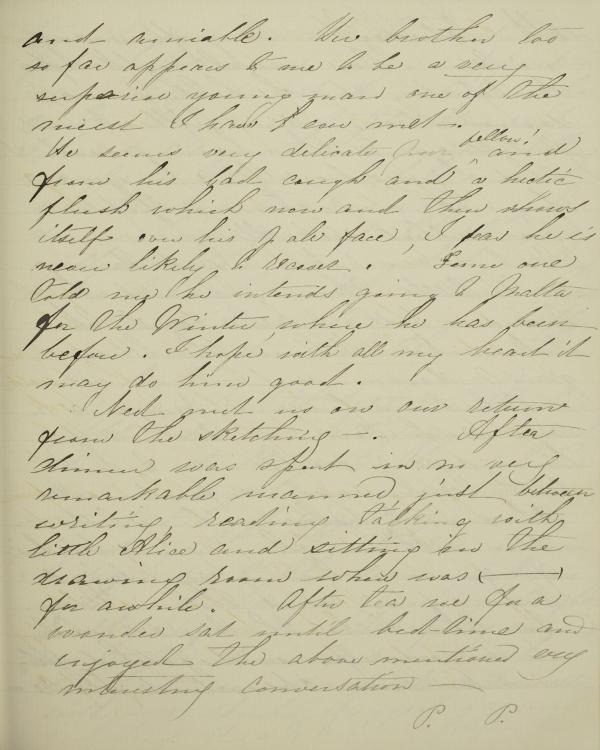 and amiable. Her brother too
so far appears to me to be a very
superior young man one of the
nicest I have ever met—.
He seems very delicate poor fellow! and
from his bad cough and a hectic
flush which now and then shows
itself over his pale face, I fear he is
never likely to recover. Some one
told me he intends going to Malta
for the Winter, where he has been
before. I hope with all my heart it
may do him good.
Ned met us on our return
from the sketching—. After
dinner was spent in no very
remarkable manner, just between
writing, reading talking with
little Alice and sitting in the
drawing room where was (——)
for awhile. After tea we for a
wonder sat until bed-time and
enjoyed the above mentioned very
interesting conversation—
P. P.